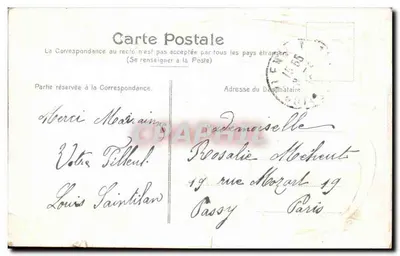 Carte Postale
La Correspondance au recto n'est pas acceptée par tous les pays étrangers
(Se renseigner à la Poste)
Partie réservée à la Correspondance.
Adresse du Destinataire
Merci Marraine
Votre Filleul
Louis Saintilan
Mademoiselle
Rosalie Méheut
19 rue Mozart 19
Passy Paris